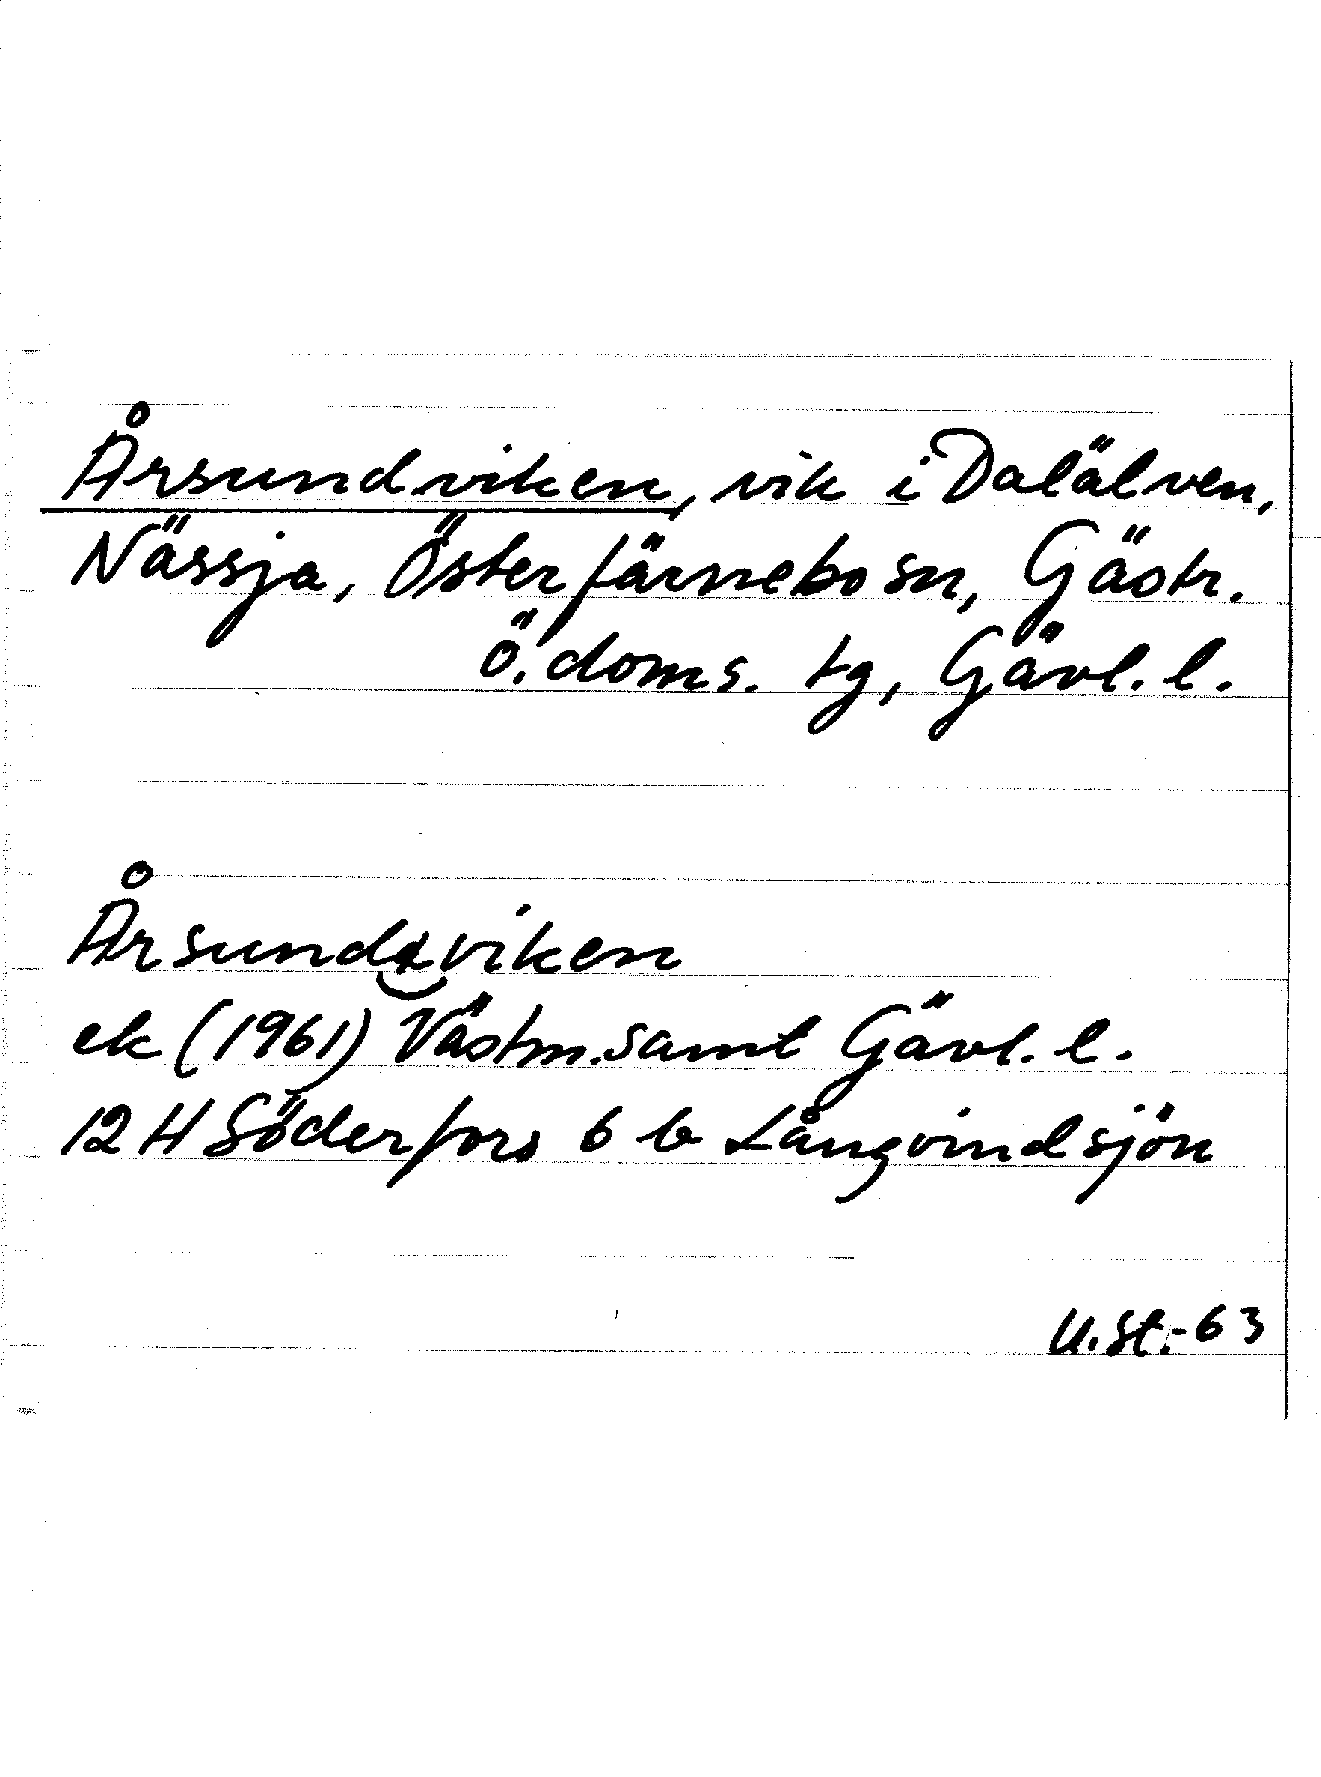 Årsundviken, vik i Dalälven,
Nässja, Österfärnebo sn, Gästr.
Ö. doms. tg, Gävl. l.
Årsundviken
ek (1961) Västm. samt Gävl. l.
12 H Söderfors 6 b Långvindsjön
U.St.-63